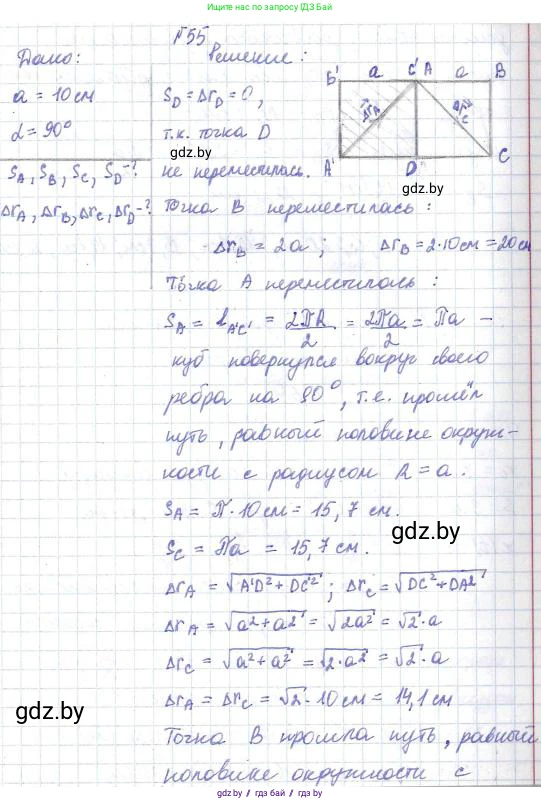 Больше решебников и ответов по ссылке: ГДЗ.РУ
№55
Дано:
Решение:
a = 10 см
α = 90°
S_A, S_B, S_C, S_D - ?
Δr_A, Δr_B, Δr_C, Δr_D - ?
S_D = Δr_D = 0,
т.к. точка D
gdz.by
не переместилась.
B' a C' A a B
Δr_A Δr_C
A' D C
gdz.by
Точка B переместилась:
Δr_B = 2a; Δr_B = 2·10см = 20см
Точка A переместилась:
S_A = l_A'C' = 2ПR/2 = 2Пa/2 = Пa -
куб повернулся вокруг своего
ребра на 90°, т.е. прошёл
путь, равный половине окруж-
ности с радиусом R = a.
S_A = П·10см = 15,7 см.
S_C = Пa = 15,7 см.
gdz.by
Δr_A = √A'D²+DC'²; Δr_C = √DC²+DA²
Δr_A = √a²+a² = √2a² = √2·a
Δr_C = √a²+a² = √2·a² = √2·a
Δr_A = Δr_C = √2·10см = 14,1см
gdz.by
Точка B прошла путь, равный
половине окружности с
gdz.by / гдз.бай / gdz.by